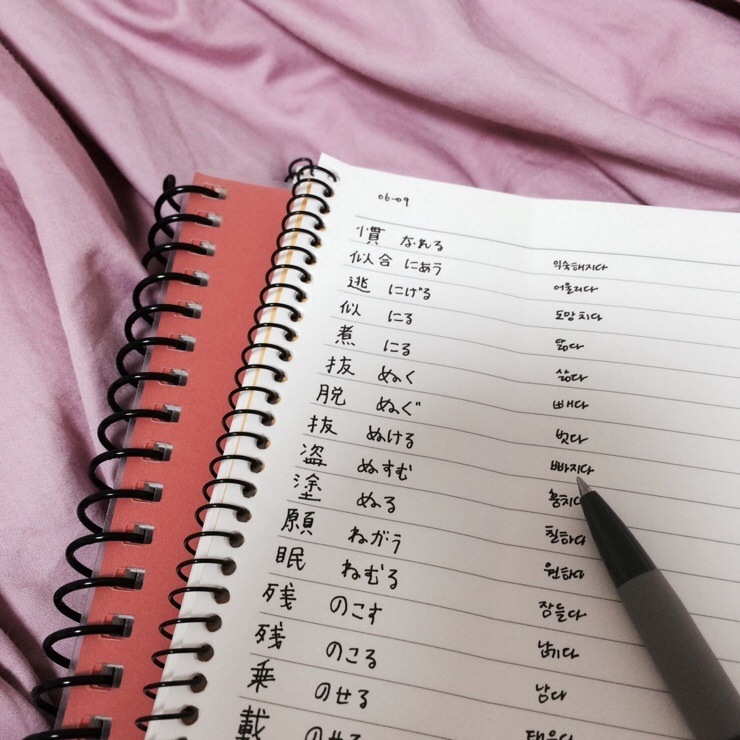 06-09
慣 なれる 익숙해지다
似合 にあう 어울리다
逃 にげる 도망치다
似 にる 닮다
煮 にる 삶다
抜 ぬく 빼다
脱 ぬぐ 벗다
抜 ぬける 빠지다
盗 ぬすむ 훔치다
塗 ぬる 칠하다
願 ねがう 원하다
眠 ねむる 잠들다
残 のこす 남기다
残 のこる 남다
乗 のせる 태우다
載 のせる